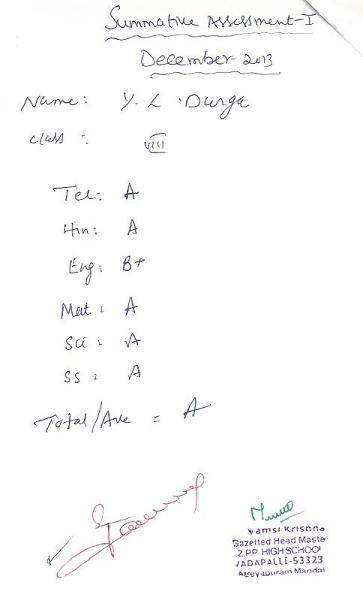 Summative Assessment-I
December-2013
Name: Y. L. Durga
class : VIII
Tel: A
Hin: A
Eng: B+
Mat: A
Sci: A
SS: A
Total/Ave = A
Vamsi Krishna
Gazetted Head Maste
Z.P.P HIGH SCHOOL
VADAPALLI-53323
Atreyapuram Mandal